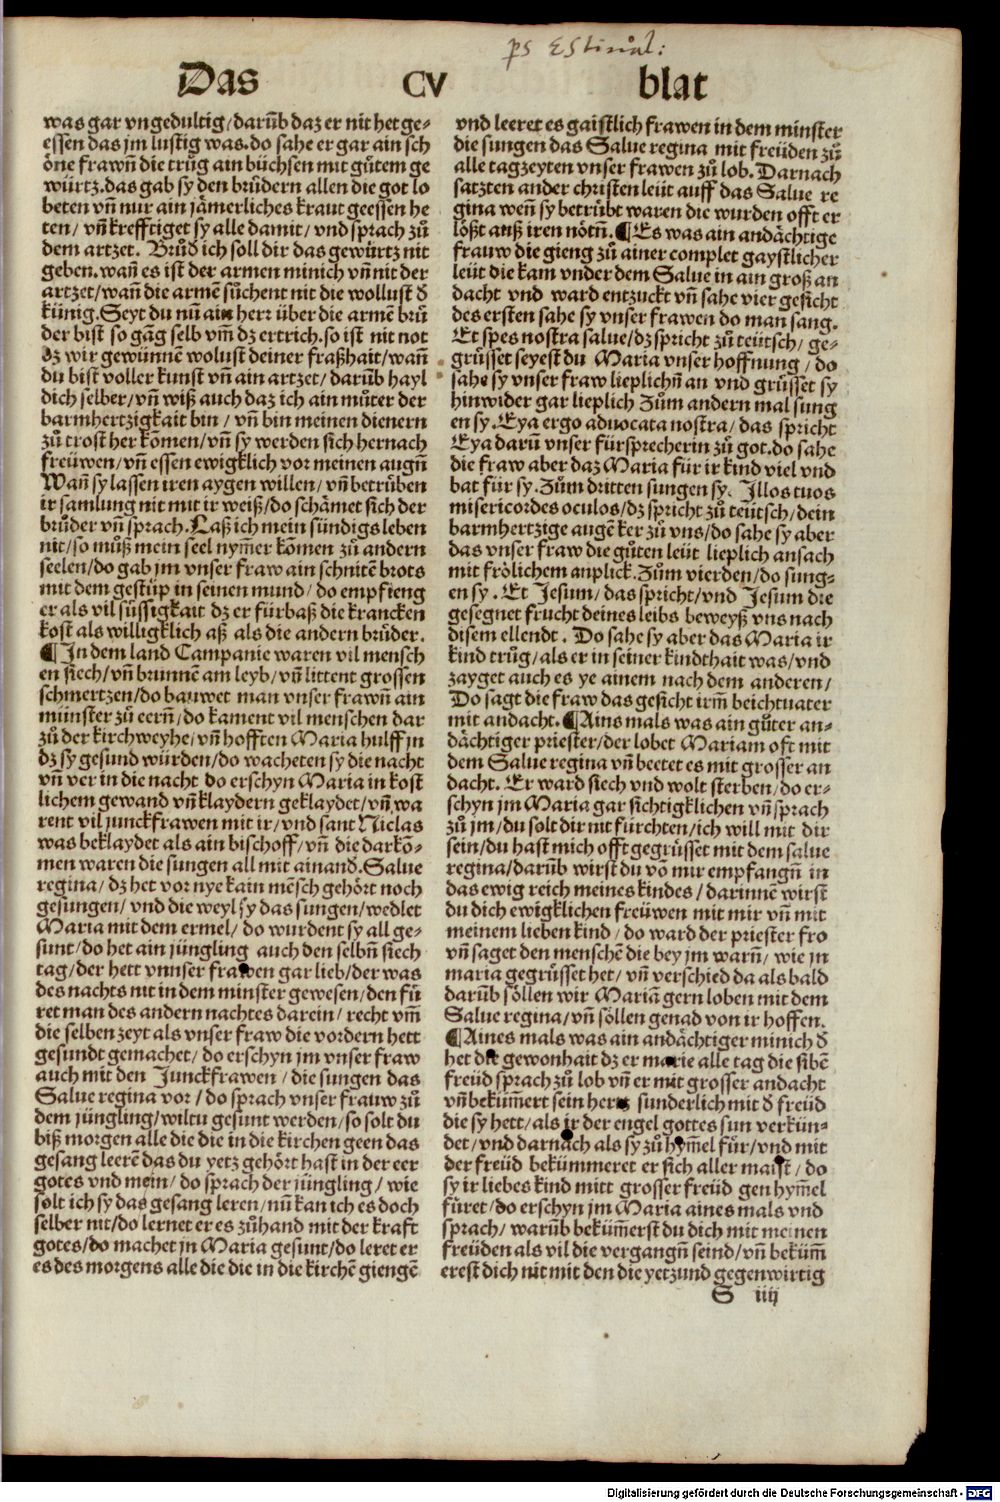 ps Estiual:
Das CV blat
was gar vngedultig/darūb daz er nit het ge-
essen das jm lustig was.do sahe er gar ain sch
öne frawn̄ die trůg ain büchsen mit gůtem ge
würtz.das gab sy den brůdern allen die got lo
beten vn̄ nur ain jämerliches kraut geessen he
ten/ vn̄ krefftiget sy alle damit/ vnd sprach zů
dem artzet. Brůd̕ ich soll dir das gewürtz nit
geben.wan̄ es ist der armen minich vn̄ nit der
artzet/wan̄ die armē sůchent nit die wollust d̕
künig.Seyt du nū ain herr über die armē brů
der bist so gāg selb vm̄ dz ertrich.so ist nit not
dz wir gewünnē wolust deiner fraßhait/wan̄
du bist voller kunst vn̄ ain artzet/ darūb hayl
dich selber/vn̄ wiß auch daz ich ain můter der
barmhertzigkait bin / vn̄ bin meinen dienern
zů trost her kōmen/vn̄ sy werden sich hernach
freüwen/vn̄ essen ewigklich vor meinen augn̄
Wan̄ sy lassen iren aygen willen/ vn̄ betrüben
ir samlung nit mit ir weiß/do schämet sich der
brůder vn̄ sprach.Laß ich mein sündigs leben
nit/so můß mein seel nym̄er kōmen zů andern
seelen/do gab jm vnser fraw ain schnitē brots
mit dem gestüp in seinen mund/ do empfieng
er als vil süssigkait dz er fürbaß die krancken
kost als willigklich aß als die andern brůder.
¶ In dem land Campanie waren vil mensch
en siech/vn̄ brunnē am leyb/vn̄ littent grossen
schmertzen/do bauwet man vnser frawn̄ ain
münster zů eern̄/do kament vil menschen dar
zů der kirchweyhe/vn̄ hofften Maria hulff jn
dz sy gesund würden/do wacheten sy die nacht
vn̄ ver in die nacht do erschyn Maria in kost
lichem gewand vn̄ klaydern geklaydet/vn̄ wa
rent vil junckfrawen mit ir/vnd sant Niclas
was beklaydet als ain bischoff/vn̄ die darkō-
men waren die sungen all mit ainand̕.Salue
regina/ dz het vor nye kain mēsch gehört noch
gesungen/ vnd die weyl sy das sungen/wedlet
Maria mit dem ermel/ do wurdent sy all ge-
sunt/do het ain jüngling auch den selbn̄ siech
tag/der hett vnnser frawen gar lieb/der was
des nachts nit in dem minster gewesen/den fů
ret man des andern nachtes darein/ recht vm̄
die selben zeyt als vnser fraw die vordern hett
gesundt gemachet/ do erschyn jm vnser fraw
auch mit den Junckfrawen /die sungen das
Salue regina vor / do sprach vnser frauw zů
dem jüngling/wiltu gesunt werden/so solt du
biß morgen alle die die in die kirchen geen das
gesang leerē das du yetz gehört hast in der eer
gotes vnd mein/ do sprach der jüngling / wie
solt ich sy das gesang leren/nū kan ich es doch
selber nit/do lernet er es zůhand mit der kraft
gotes/do machet jn Maria gesunt/do leret er
es des morgens alle die die in die kirchē giengē
vnd leeret es gaistlich frawen in dem minster
die sungen das Salue regina mit freüden zů
alle tagzeyten vnser frawen zů lob. Darnach
satzten ander christen leüt auff das Salue re
gina wen̄ sy betrübt waren die wurden offt er
lößt auß iren nötn̄. ¶ Es was ain andächtige
frauw die gieng zů ainer complet gaystlicher
leüt die kam vnder dem Salue in ain groß an
dacht vnd ward entzuckt vn̄ sahe vier gesicht
des ersten sahe sy vnser frawen do man sang.
Et spes nostra salue/dz spricht zů teütsch/ ge-
grüsset seyest du Maria vnser hoffnung / do
sahe sy vnser fraw lieplichn̄ an vnd grüsset sy
hinwider gar lieplich Zům andern mal sung
en sy. Eya ergo aduocata nostra/ das spricht
Eya darū vnser fürsprecherin zů got.do sahe
die fraw aber daz Maria für ir kind viel vnd
bat für sy.Zům dritten sungen sy. Illos tuos
misericordes oculos/dz spricht zů teütsch/dein
barmhertzige augē ker zů vns/do sahe sy aber
das vnser fraw die gůten leüt lieplich ansach
mit frölichem anplick.Zům vierden/do sung-
en sy. Et Jesum/das spricht/vnd Jesum die
gesegnet frucht deines leibs beweyß vns nach
disem ellendt. Do sahe sy aber das Maria ir
kind trůg/als er in seiner kindthait was/vnd
zayget auch es ye ainem nach dem anderen/
Do sagt die fraw das gesicht irm̄ beichtuater
mit andacht. ¶ Ains mals was ain gůter an-
dächtiger priester/der lobet Mariam oft mit
dem Salue regina vn̄ beetet es mit grosser an
dacht. Er ward siech vnd wolt sterben/do er-
schyn jm Maria gar sichtigklichen vn̄ sprach
zů jm/du solt dir nit fürchten/ich will mit dir
sein/du hast mich offt gegrüsset mit dem salue
regina/darūb wirst du vō mir empfangn̄ in
das ewig reich meines kindes/ darinnē wirst
du dich ewigklichen freüwen mit mir vn̄ mit
meinem lieben kind/ do ward der priester fro
vn̄ saget den menschē die bey jm warn̄/ wie jn
maria gegrüsset het/ vn̄ verschied da als bald
darūb söllen wir Mariā gern loben mit dem
Salue regina/vn̄ söllen genad von ir hoffen.
¶ Aines mals was ain andächtiger minich d̕
het die gewonhait dz er marie alle tag die sibē
freüd sprach zů lob vn̄ er mit grosser andacht
vn̄ bekūm̄ert sein hertz sunderlich mit d̕ freüd
die sy hett/als ir der engel gottes sun verkün-
det/vnd darnach als sy zů hym̄el fůr/vnd mit
der freüd bekümmeret er sich aller maist/ do
sy ir liebes kind mitt grosser freüd gen hym̄el
fůret/do erschyn jm Maria aines mals vnd
sprach/ warūb bekūm̄erst du dich mit meinen
freüden als vil die vergangn̄ seind/vn̄ bekūm̄
erest dich nit mit den die yetzund gegenwirtig
S iiij
Digitalisierung gefördert durch die Deutsche Forschungsgemeinschaft - DFG